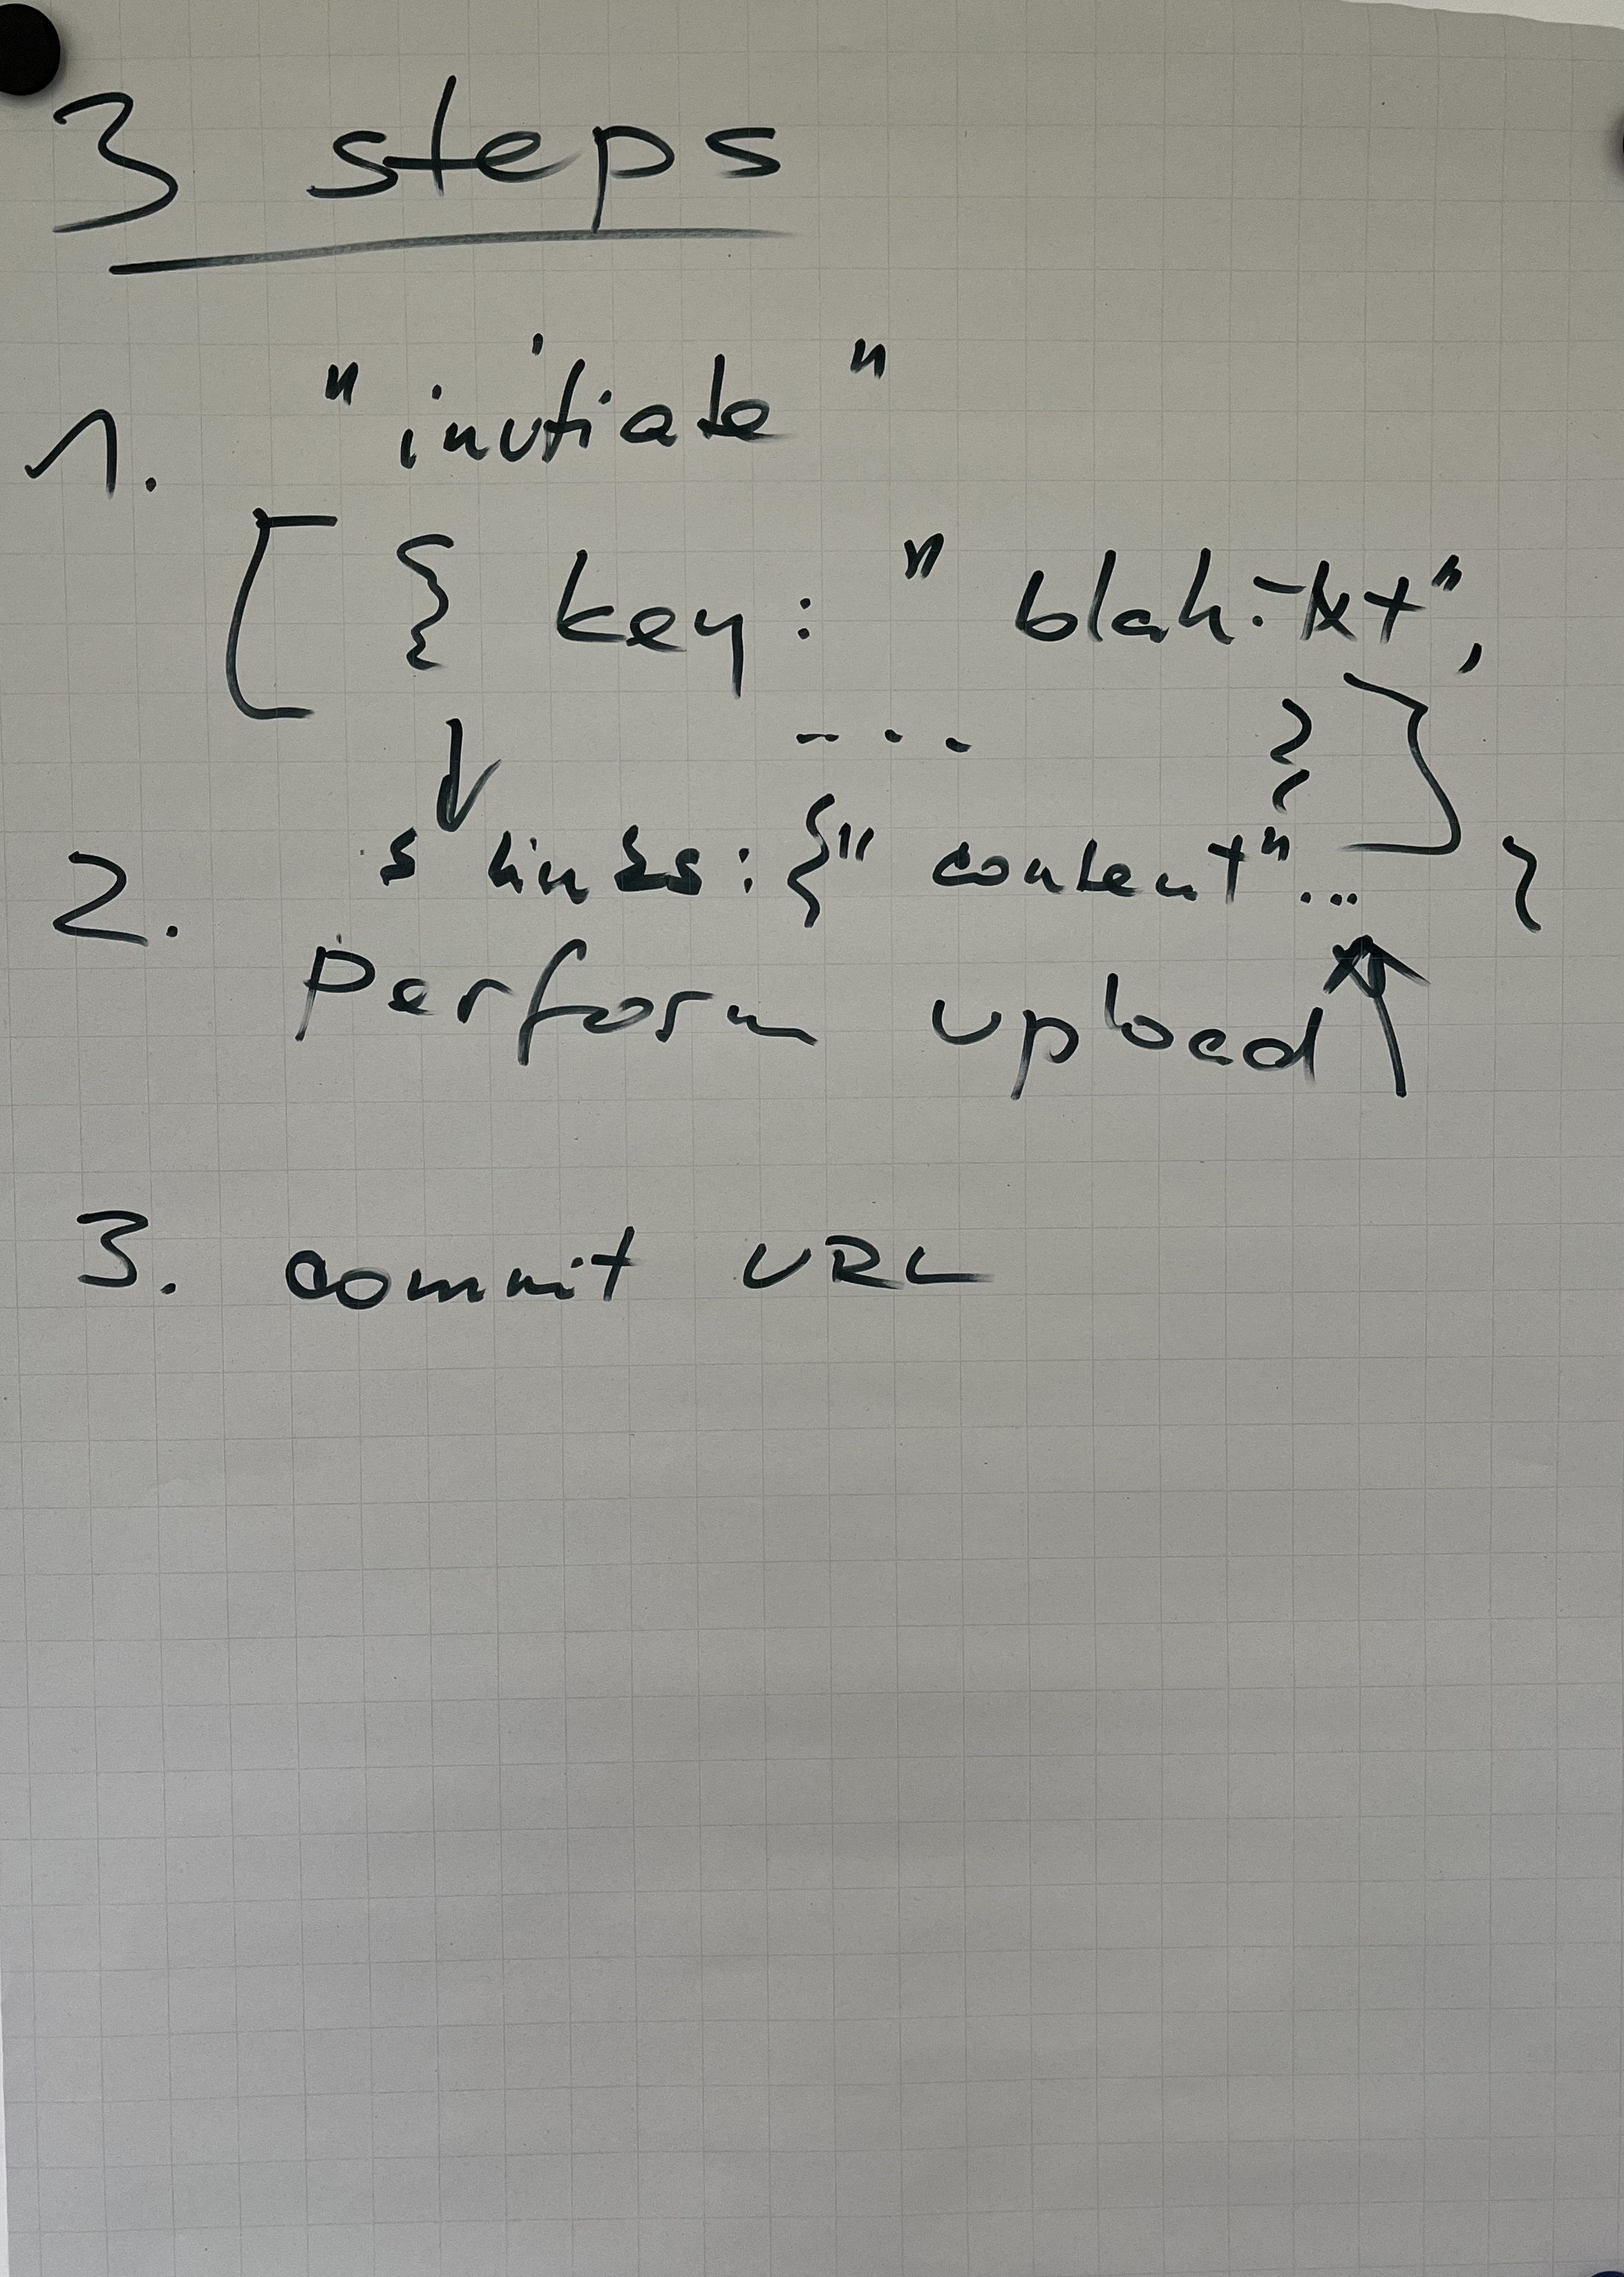 3 steps
1. "initiate"
[ { key: "blah.txt",
... } ]
{ links: { "content" ... }
2. Perform upload
3. commit URL